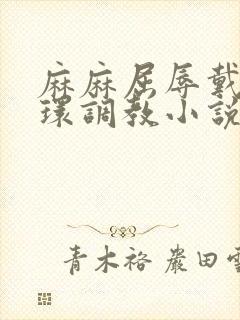 麻麻屈辱戴
環調教小説
青木裕 嚴田雪